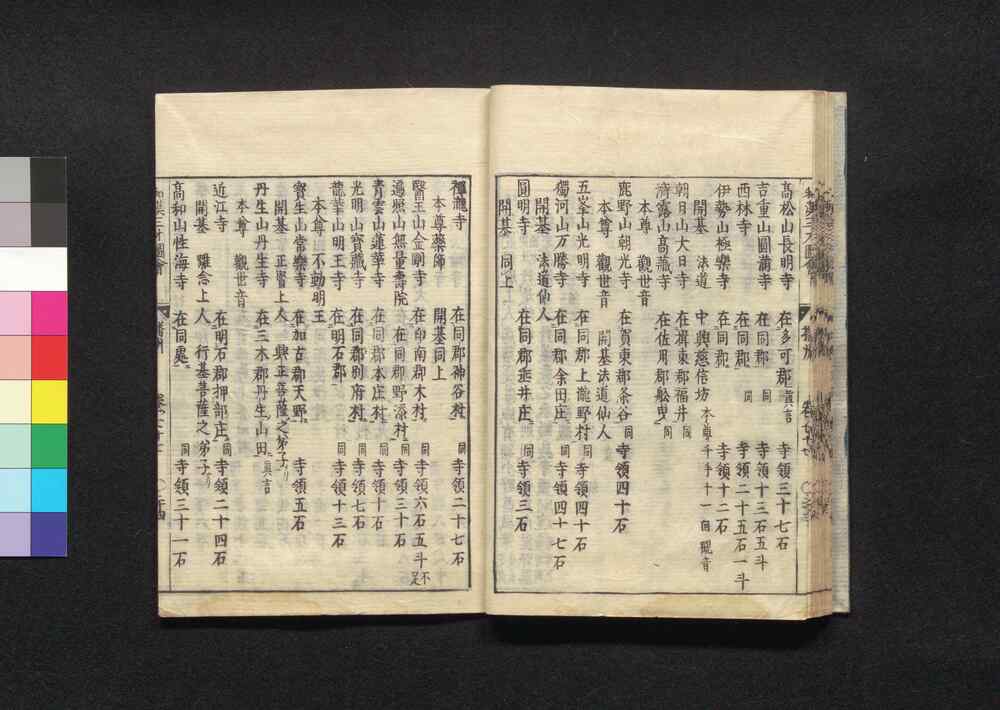 高松山長明寺 在多可郡 真言 寺領三十七石
吉重山圓満寺 在同郡 同 寺領十三石五斗
西林寺 在同郡 同 寺領二十五石一斗
伊勢山極樂寺 在同郡 寺領十二石
開基 法道 中興慈倍坊 本尊千手十一面觀音
朝日山大日寺 在揖東郡福井 同
濟露山高藏寺 在佐用郡船曳 同
本尊 觀世音
鹿野山朝光寺 在賀東郡条谷 同 寺領四十石
本尊 觀世音 開基法道仙人
五峯山光明寺 在同郡上瀧野村 同 寺領四十石
獨河山万勝寺 在同郡余田庄 同 寺領四十七石
開基 法道仙人
圓明寺 在同郡垂井庄 同 寺領三石
開基 同上
禪瀧寺 在同郡神谷村 同 寺領二十七石
本尊藥師 開基同上
醫王山金剛寺 在印南郡木村 同 寺領六石五斗不足
遍照山無量壽院 在同郡野添村 同 寺領三十石
青雲山蓮華寺 在同郡本庄村 同 寺領十石
光明山寶藏寺 在同郡別府村 同 寺領七石
龍華山明王寺 在明石郡 同 寺領十三石
本尊 不動明王
寶生山常樂寺 在加古郡天野 寺領五石
開基 正覺上人 興正菩薩之弟子
丹生山丹生寺 在三木郡丹生山田 真言
本尊 觀世音
近江寺 在明石郡押部庄 同 寺領二十四石
開基 難念上人 行基菩薩之弟子
高和山性海寺 在同處 同 寺領三十一石
和漢三才圖會